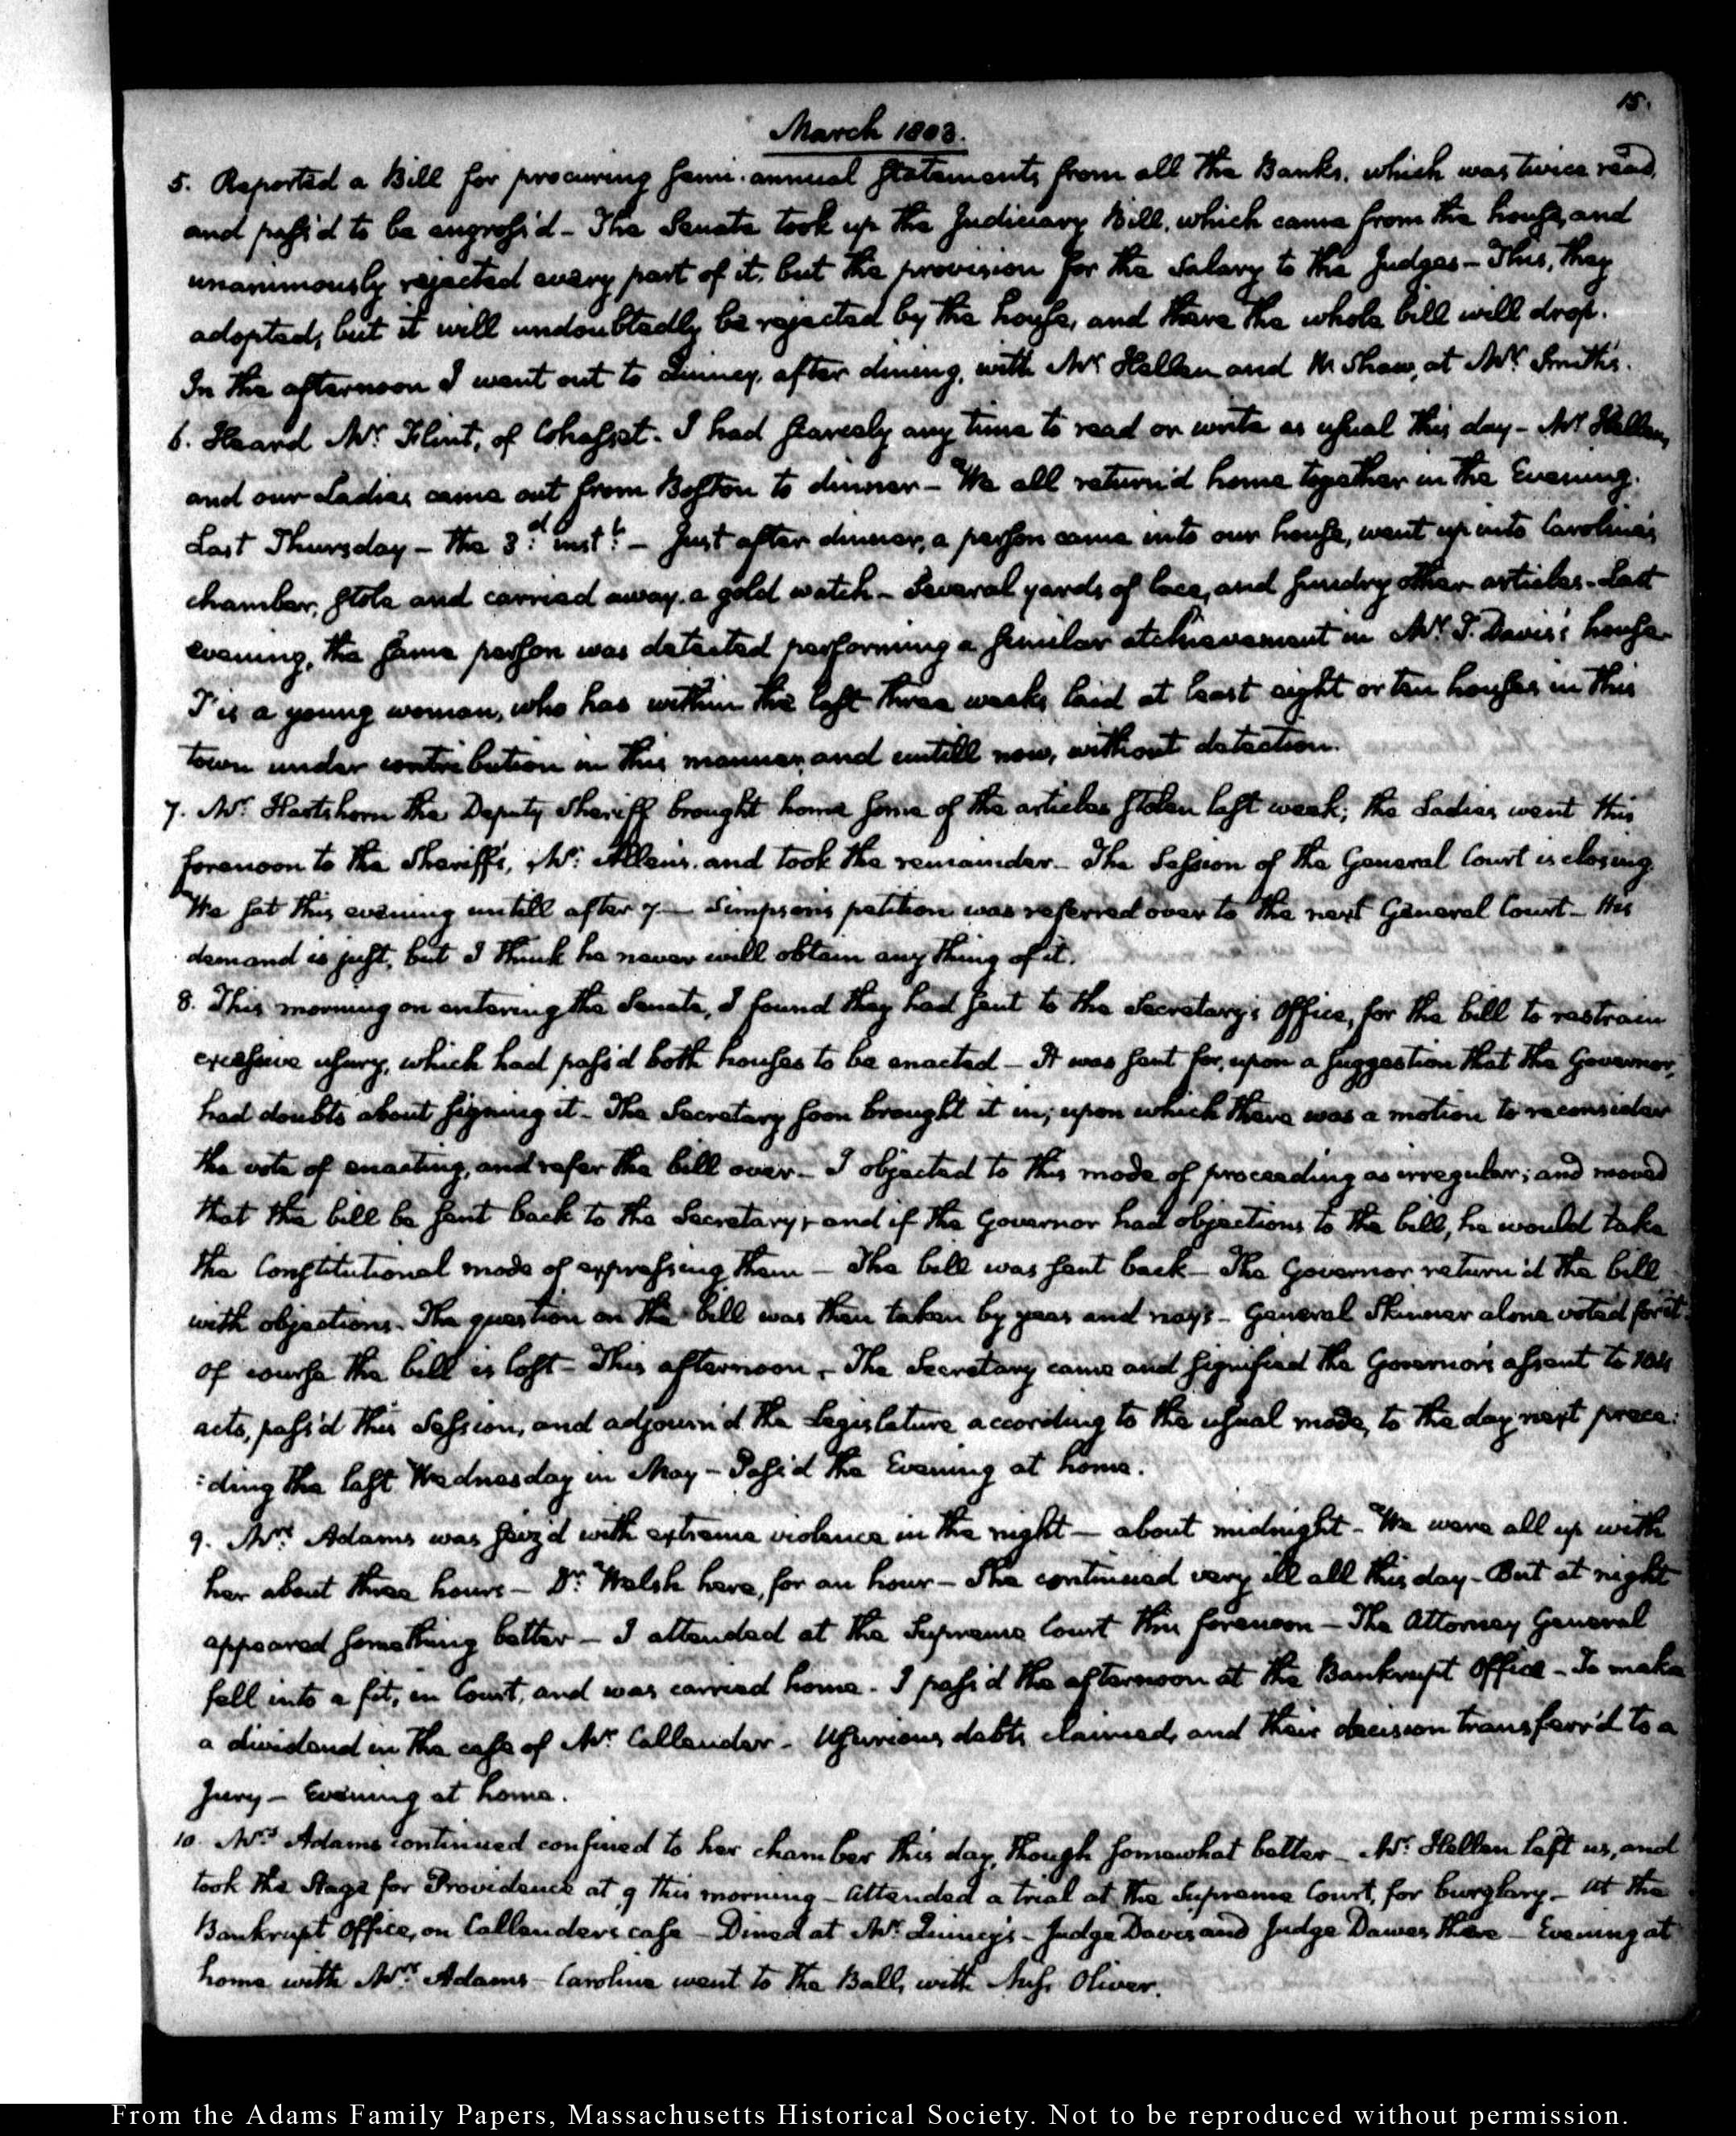 15.
March 1803.
5. Reported a Bill for procuring semi-annual statements from all the Banks, which was twice read,
and pass'd to be engross'd - The Senate took up the Judiciary Bill, which came from the house, and
unanimously rejected every part of it, but the provision for the Salary to the Judges - This, they
adopted, but it will undoubtedly be rejected by the house, and there the whole bill will drop.
In the afternoon I went out to Quincy, after dining, with Mr. Hellen and W. Shaw, at Mr. Smith's.
6. Heard Mr. Flint, of Cohasset. I had scarcely any time to read or write as usual this day - Mr. Hellen,
and our Ladies came out from Boston to dinner - We all return'd home together in the Evening.
Last Thursday - the 3d. inst. - Just after dinner, a person came into our house, went up into Caroline's
chamber, stole and carried away, a gold watch - Several yards of lace, and sundry other articles - Last
evening, the same person was detected performing a similar atchievement in Mr. J. Davis's house
T'is a young woman, who has within the last three weeks laid at least eight or ten houses in this
town under contribution in this manner, and untill now, without detection.
7. Mr. Hartshorn the Deputy Sheriff brought home some of the articles stolen last week; the Ladies went this
forenoon to the Sheriff's, Mr. Allen's, and took the remainder - The Session of the General Court is closing.
We sat this evening untill after 7 - Simpson's petition was referred over to the next General Court - His
demand is just, but I think he never will obtain any thing of it.
8. This morning on entering the Senate, I found they had sent to the Secretary's Office, for the bill to restrain
excessive usury, which had pass'd both houses to be enacted - It was sent for, upon a suggestion that the Governor,
had doubts about signing it - The Secretary soon brought it in; upon which there was a motion to reconsider
the vote of enacting, and refer the bill over - I objected to this mode of proceeding as irregular; and moved
that the bill be sent back to the Secretary; and if the Governor had objections to the bill, he would take
the Constitutional mode of expressing them - The bill was sent back - The Governor return'd the bill
with objections. The question on the bill was then taken by yeas and nays - General Skinner alone voted for it
of course the bill is lost - This afternoon, The Secretary came and signified the Governor's assent to 104
acts, pass'd this Session, and adjourn'd the Legislature according to the usual mode, to the day next prece:
:ding the last Wednesday in May - Pass'd the Evening at home.
9. Mrs. Adams was seiz'd with extreme violence in the night - about midnight - We were all up with
her about three hours - Dr. Welsh here, for an hour - She continued very ill all this day - But at night
appeared something better - I attended at the Supreme Court this forenoon - The Attorney General
fell into a fit, in Court, and was carried home - I pass'd the afternoon at the Bankrupt Office - To make
a dividend in the case of Mr. Callender - Usurious debts claimed, and their decision transferr'd to a
Jury - Evening at home.
10. Mrs. Adams continued confined to her chamber this day, though somewhat better - Mr. Hellen left us, and
took the Stage for Providence at 9 this morning - Attended a trial at the Supreme Court, for burglary - At the
Bankrupt Office, on Callenders case - Dined at Mr. Quincy's - Judge Davis and Judge Dawes there - Evening at
home with Mrs. Adams - Caroline went to the Ball, with Miss Oliver.
From the Adams Family Papers, Massachusetts Historical Society. Not to be reproduced without permission.